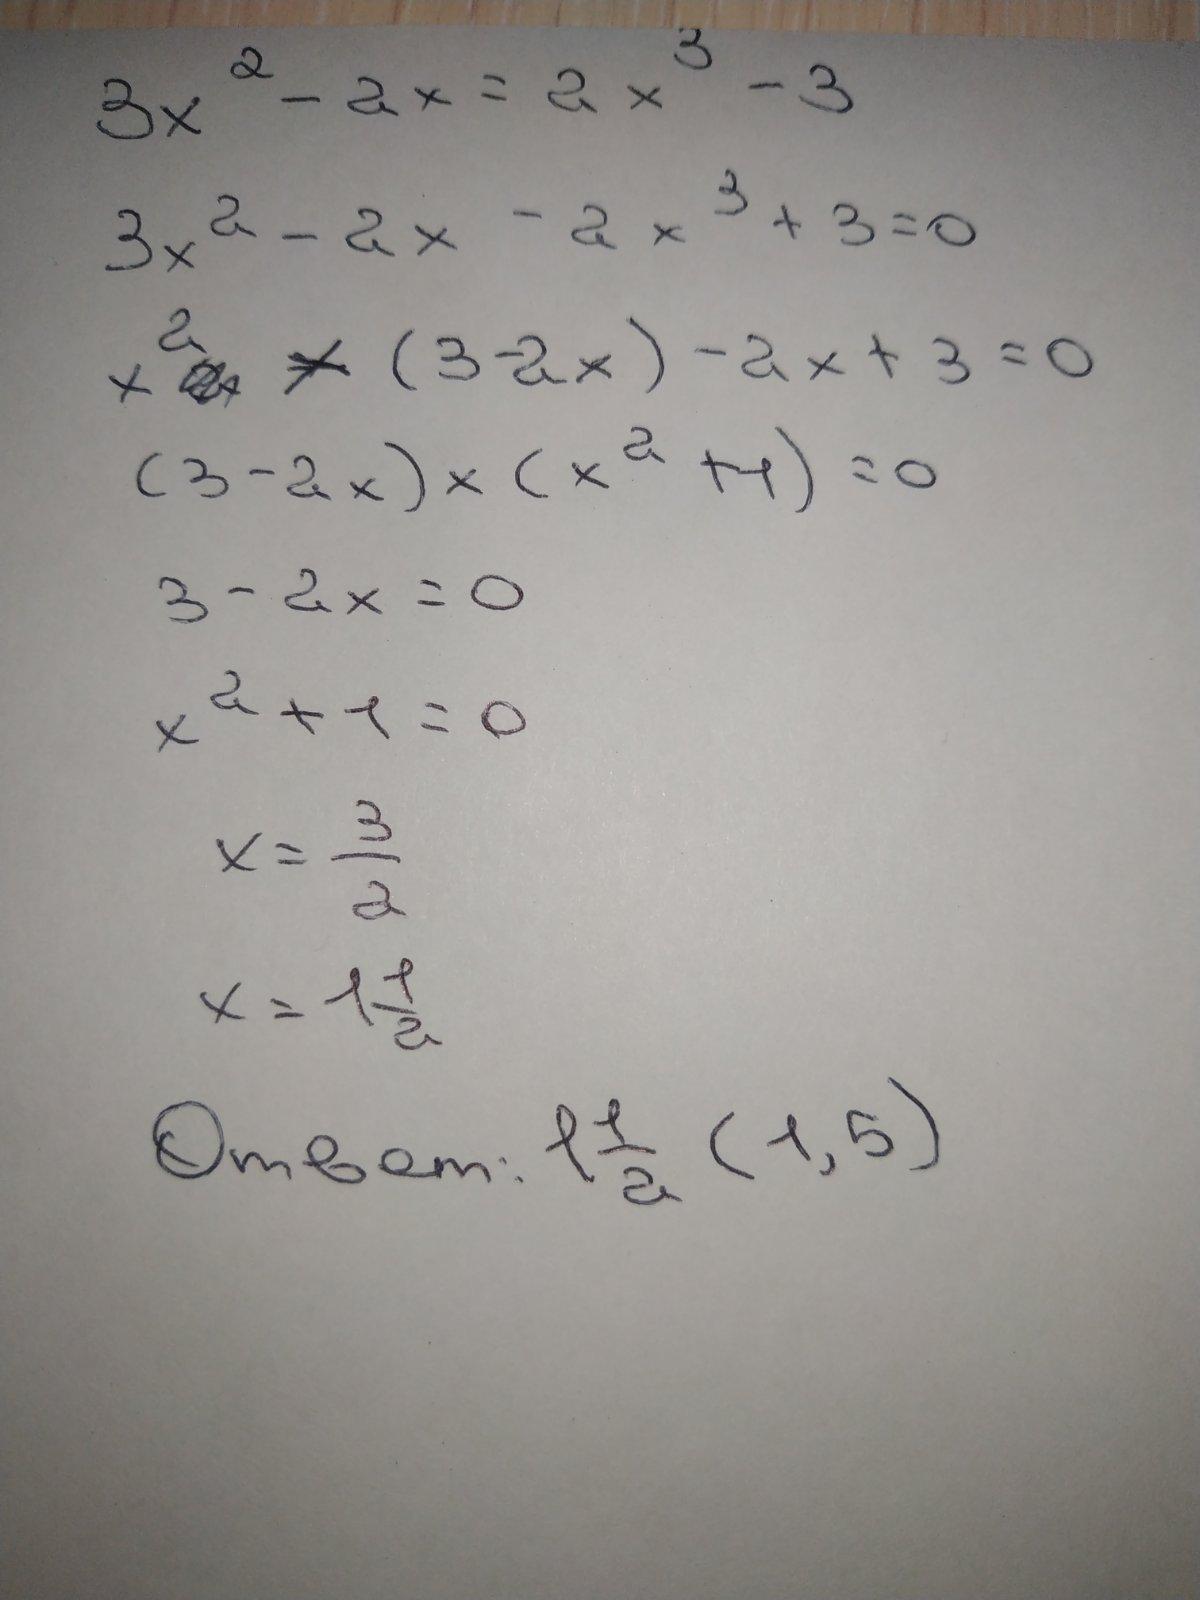 3x² - 2x = 2x³ - 3
3x² - 2x - 2x³ + 3 = 0
x² (3 - 2x) - 2x + 3 = 0
(3 - 2x) × (x² + 1) = 0
3 - 2x = 0
x² + 1 = 0
x = 3/2
x = 1 1/2
Ответ: 1 1/2 (1,5)